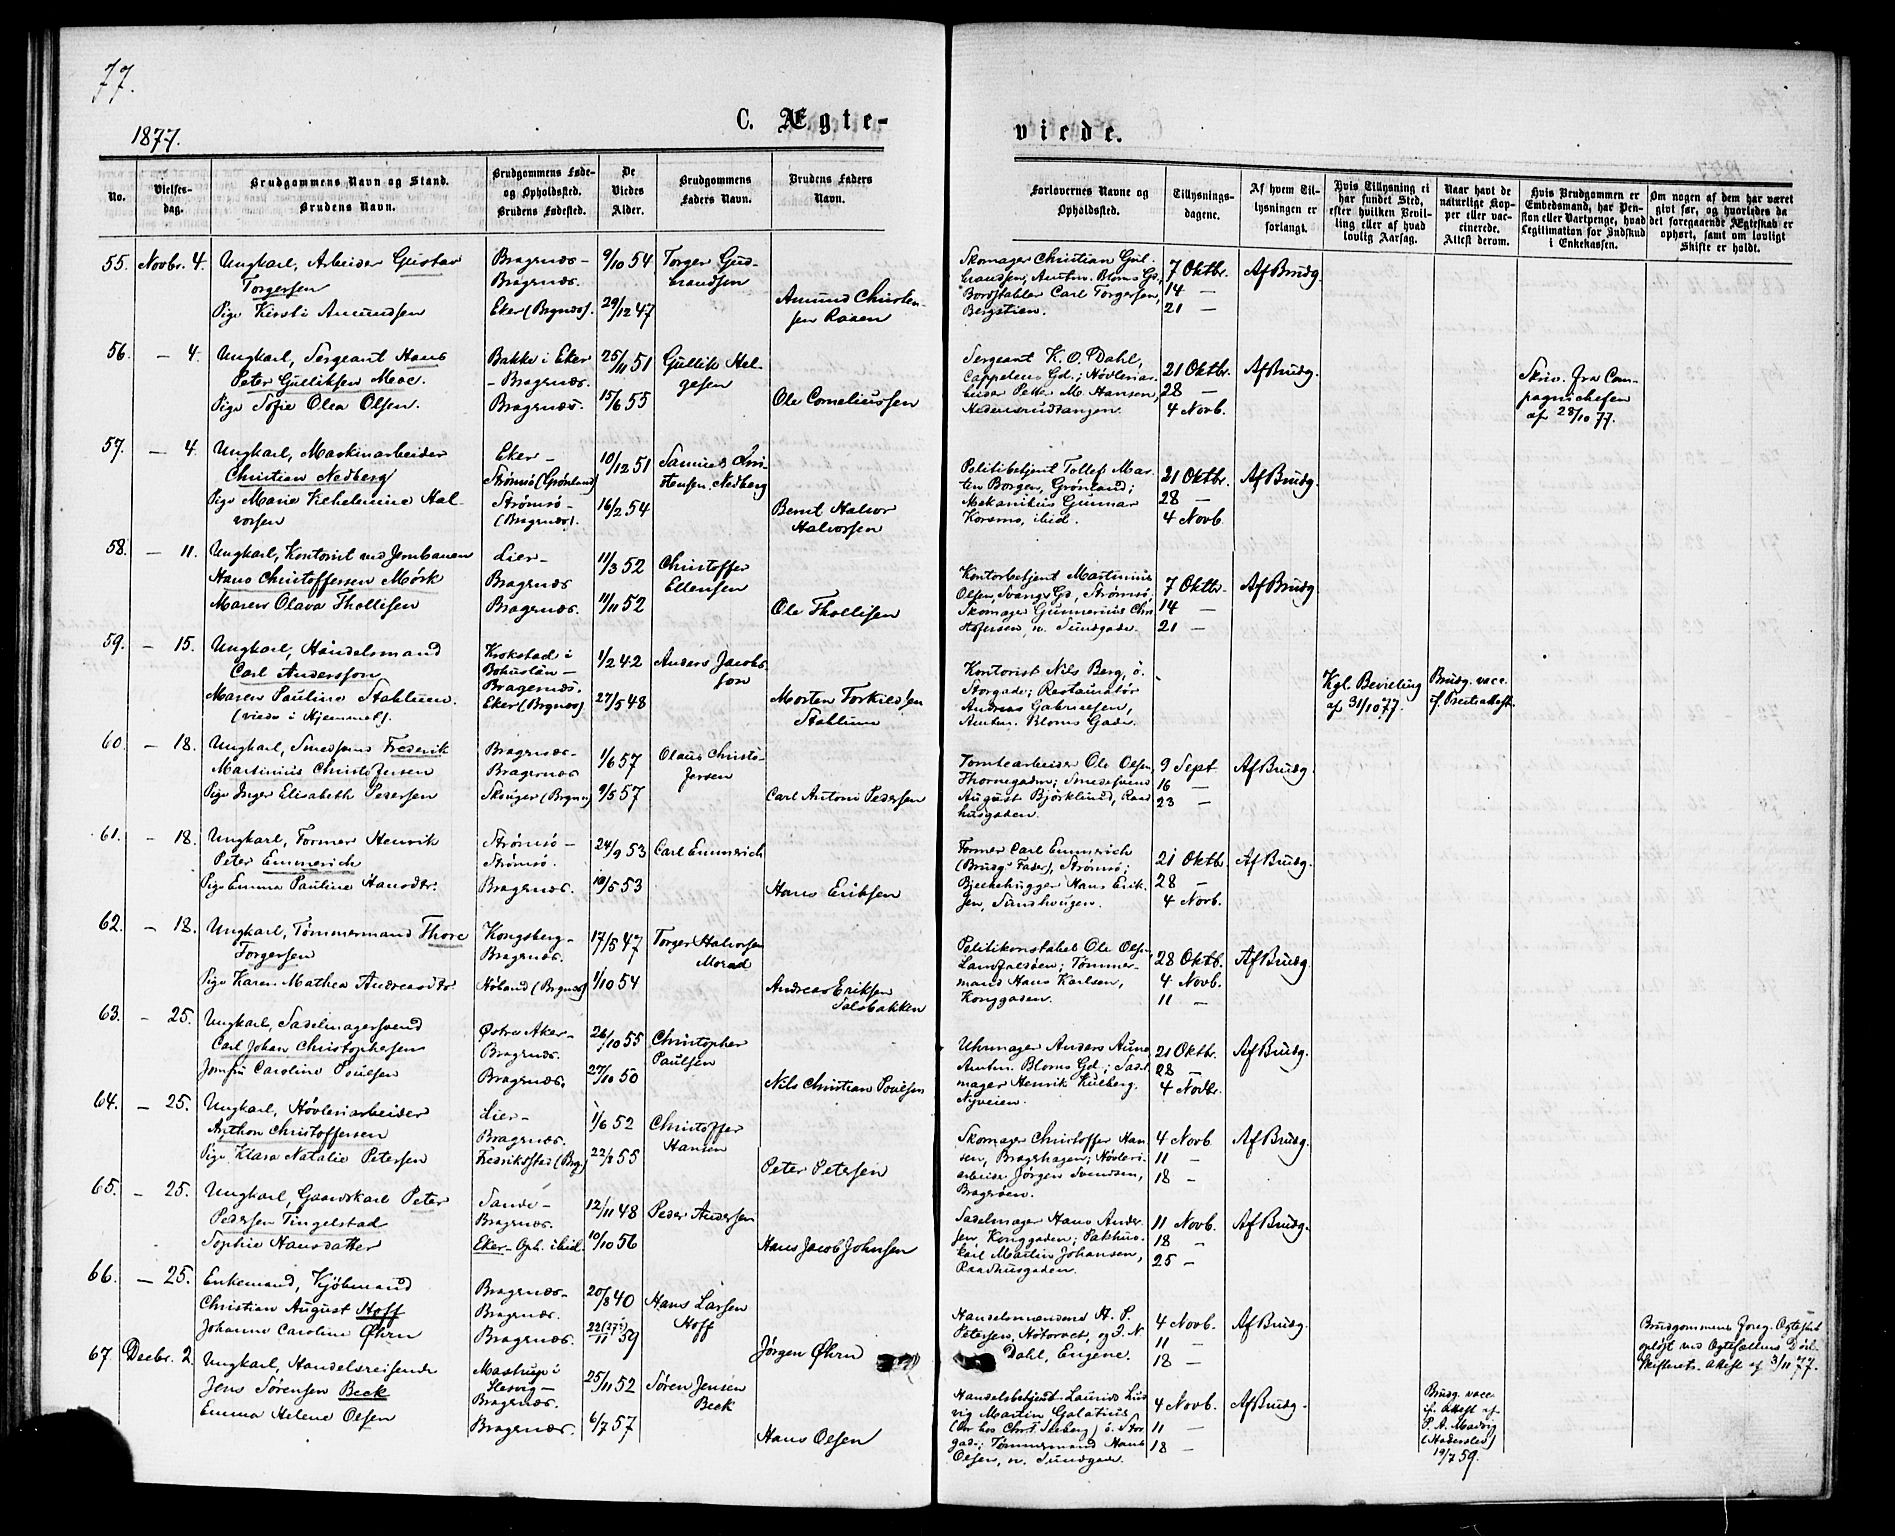 77.
1877.
C. Ægte-
viede.
No.
Vielses-
dag.
Brudgommens Navn og Stand.
Brudens Navn.
Brudgommens Føde-
og Opholdssted.
Brudens Fødested.
De
Viedes
Alder.
Brudgommens
Faders Navn.
Brudens Faders
Navn.
Forlovernes Navne og
Opholdssted.
Tillysnings-
dagene.
Af hvem Til-
lysningen er
forlangt.
Hvis Tillysning ei
har fundet Sted,
efter hvilken Bevil-
ling eller af hvad
lovlig Aarsag.
Naar havt de
naturlige Kop-
per eller vac-
cinerede.
Attest derom.
Hvis Brudgommen er
Embedsmand, har Pen-
sion eller Vartpenge, hvad
Legitimation for Indskud
i Enkekassen.
Om nogen af dem har været
givt før, og hvorledes da
det foregaaende Ægteskab er
ophørt, samt om lovligt
Skifte er holdt.
55. Novbr. 4. Ungkarl, Arbeider Gustav
Torgersen
Pige Kirsti Amundsen
Bragernæs-
Bragernæs.
Eker (Brgnæs).
9/10 54
29/12 47
Torger Gud-
brandsen
Amund Christen-
sen Raaen
Skomager Christian Gul-
brandsen, Amtm. Bloms Gd,
Bordstabler Carl Torgersen,
Bergstien.
7 Oktbr.
14 —
21 —
Af Brudg.
56. — 4. Ungkarl, Sergeant Hans
Peter Gulliksen Moe.
Pige Sofie Olea Olsen.
Bakke i Eker
- Bragernæs.
Bragernæs.
25/11 51
15/6 55
Gullik Hel-
gesen
Ole Corneliussen
Sergeant K. O. Dahl,
Cappelens Gd.; Høvleriar-
beider Petter M. Hansen,
Hedensrudtangen.
21 Oktbr.
28 —
4 Novb.
Af Brudg.
Skriv. fra Com-
pagnichefen
af 28/10 77.
57. — 4. Ungkarl, Maskinarbeider
Christian Nedberg
Pige Marie Vilhelmine Hal-
vorsen
Eker -
Strømsø (Grønland)
Strømsø -
(Bragernæs).
10/12 51
16/2 54
Samuel Chri-
stensen Nedberg
Bernt Halvor
Halvorsen
Politibetjent Tollef Mar-
tin Borgen, Grønland;
Mekanikus Gunnar
Korsmo, ibid.
21 Oktbr.
28 —
4 Novb.
Af Brudg.
58. — 11. Ungkarl, Kontorist ved Jernbanen
Hans Christoffersen Mørk
Maren Olava Thollisen
Lier-
Bragernæs
Bragernæs.
11/3 52
11/11 52
Christoffer
Ellensen
Ole Thollisen
Kontorbetjent Martinius
Olsen, Svangs Gd, Strømsø,
Skomager Gunnerius Chri-
stofersen, n. Sundgade.
7 Oktbr.
14 —
21 —
Af Brudg.
59. — 15. Ungkarl, Handelsmand
Carl Andersson
Maren Pauline Stablum.
(viede i Hjemmet)
Krokstad i
Bohuslän -
Bragernæs.
Eker (Brgnæs)
1/2 42
27/5 48
Anders Jacobs-
son
Morten Torkildsen
Stablum
Kontorist Nils Berg, ö.
Storgade; Restauratør
Andreas Gabrielsen,
Amtm. Bloms Gade.
Kgl. Bevilling
af 31/10 77.
Brudg. vacc.
if. Præsteattest.
60. — 18. Ungkarl, Smedsvend Frederik
Martinius Christofersen
Pige Inger Elisabeth Pedersen
Bragernæs-
Bragernæs
Skouger (Brgnæs)
1/6 57
9/5 57
Olaus Christo-
fersen
Carl Antoni Pedersen
Tomtearbeider Ole Olsen
Thornegaden; Smedesvend
August Björklund, Raad-
husgaden.
9 Sept
16 —
23 —
Af Brudg.
61. — 18. Ungkarl, Former Henrik
Peter Emmerich
Pige Emma Pauline Hansdtr.
Strømsø -
Strømsø.
Bragernæs.
24/9 53
19/5 53
Carl Emmerich
Hans Eriksen
Former Carl Emmerich
(Brudg' Fader), Strømsø;
Bjelkehugger Hans Erik-
sen, Sundhougen.
21 Oktbr
28 —
4 Novb.
Af Brudg.
62. — 18. Ungkarl, Tømmermand Thore
Torgersen
Pige Karen Mathea Andreasdtr.
Kongsberg -
Bragernæs.
Høland (Brgnæs)
17/5 47
1/10 54
Torger Halvorsen
Morud
Andreas Eriksen
Dalsbakken
Politikonstabel Ole Olsen
Landfaløen; Tømmer-
mand Hans Karlsen,
Konggaden.
28 Oktb.
4 Novb.
11 —
Af Brudg.
63. — 25. Ungkarl, Sadelmagersvend
Carl Johan Christophersen
Jomfru Caroline Poulsen
Østre Aker-
Bragernæs.
Bragernæs.
26/10 55
27/10 50
Christopher
Paulsen
Nils Christian Poulsen
Uhrmager Anders Aune
Amtm. Bloms Gd.; Sadel-
mager Henrik Kulberg.
Nyveien.
21 Oktbr.
28 —
4 Novbr.
Af Brudg.
64. — 25. Ungkarl, Høvleriarbeider
Anthon Christoffersen
Pige Klara Natalie Petersen
Lier-
Bragernæs.
Fredrikstad (Brg.)
1/6 52
22/8 55
Christoffer
Hansen
Peter Petersen
Skomager Christoffer Han-
sen, Bragerhagen; Høvleri-
arbeider Jørgen Svendsen,
Bragerøen.
4 Novb.
11 —
18 —
Af Brudg.
65. — 25. Ungkarl, Gaardskarl Peter
Pedersen Tingelstad
Sophie Hansdatter
Sande-
Bragernæs.
Eker - Oph. ibid.
12/11 48
10/10 56
Peder Andersen
Hans Jacob Johnsen
Sadelmager Hans Ander-
sen, Konggaden; Pakhus-
karl Martin Johansen,
Raadhusgaden.
11 Novb.
18 —
25 —
Af Brudg.
66. — 25. Enkemand, Kjöbmand
Christian August Hoff
Johanne Caroline Øhrn
Bragernæs-
Bragernæs.
Bragernæs.
20/8 40
22(27?)/11 59
Hans Larsen
Hoff
Jørgen Øhrn
Handelsmændene H. P.
Petersen, Hötorvet, og J. N.
Dahl, Engene.
4 Novb.
11 —
18 —
Af Brudg.
Brudgommens foreg. Ægteskab
opløst ved Ægtefællens Død.
Skifterets Attest af 3/11 77.
67. Decbr. 2. Ungkarl, Handelsreisende
Jens Sørensen Beck
Emma Helene Olsen
Mastrup i
Slesvig -
Bragernæs.
Bragernæs.
25/11 52
6/7 57
Søren Jensen
Beck
Hans Olsen
Handelsbetjent Laurids Lud-
vig Martin Galatius
(br hos Chr. Seeberg) ö. Stor-
gade; Tömmermand Hans
Olsen, n. Sundgade.
4 Novb.
11 —
18 —
Af Brudg.
Brudg. vacc.
if. Attest af
P. A. Madvig
(Haderslev)
19/7 59.